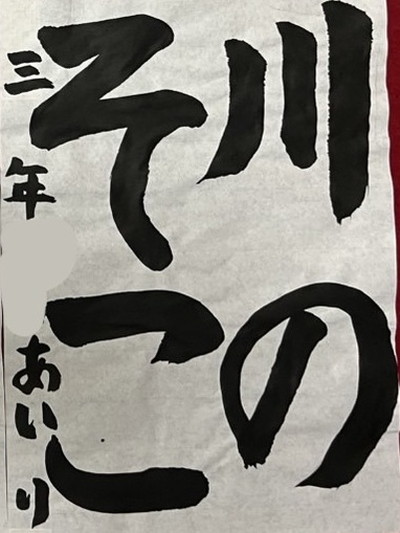 川の
そこ
三年 あいり